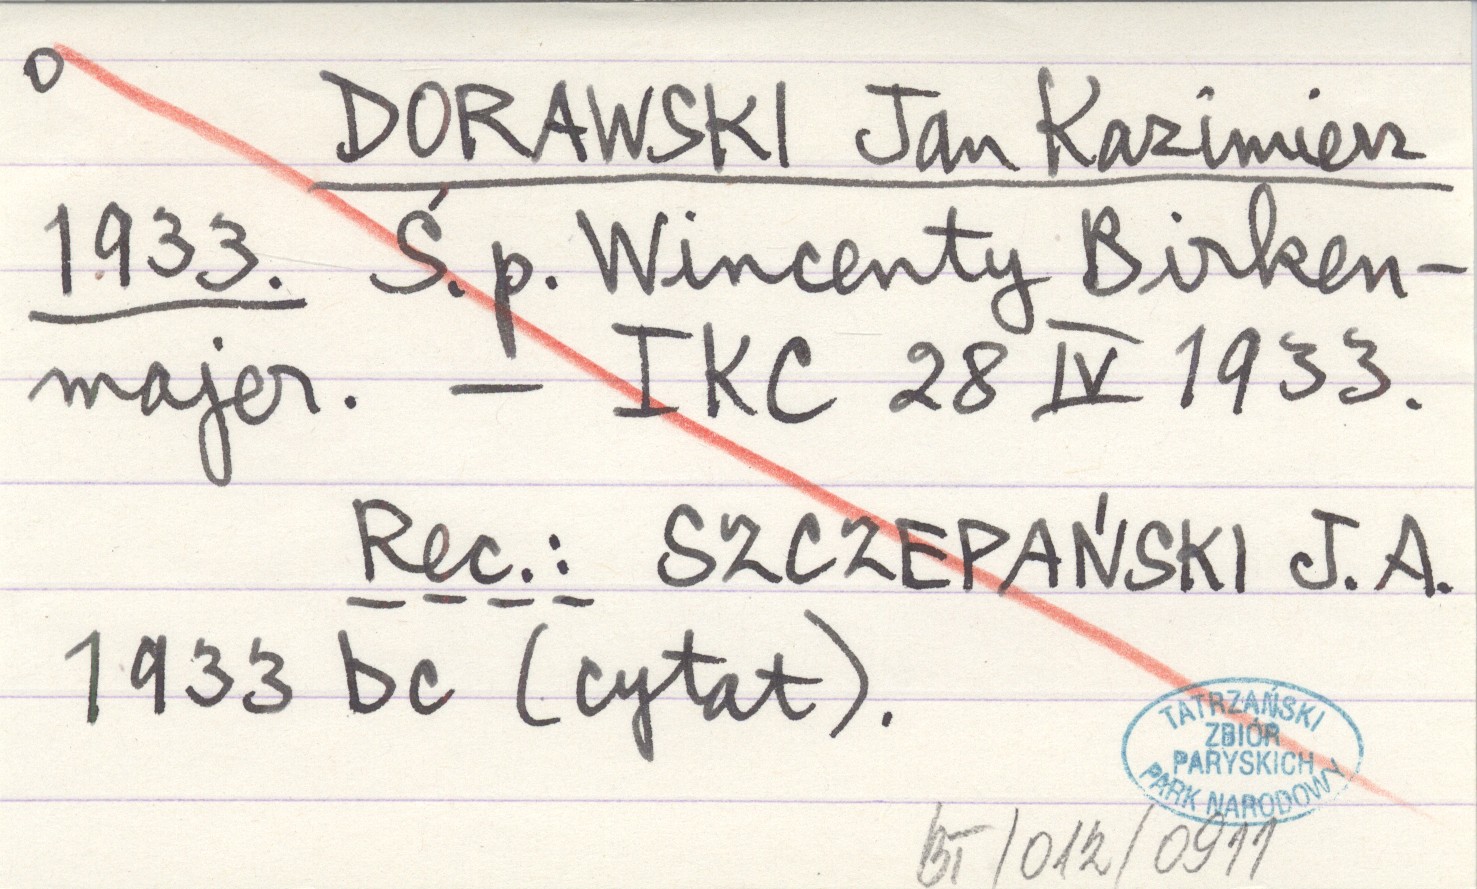 O
DORAWSKI Jan Kazimierz
1933. Ś.p. Wincenty Birken-
majer. — IKC 28 IV 1933.
Rec.: SZCZEPAŃSKI J.A.
1933 bc (cytat).
TATRZAŃSKI
ZBIÓR
PARYSKICH
PARK NARODOWY
BT/012/0911